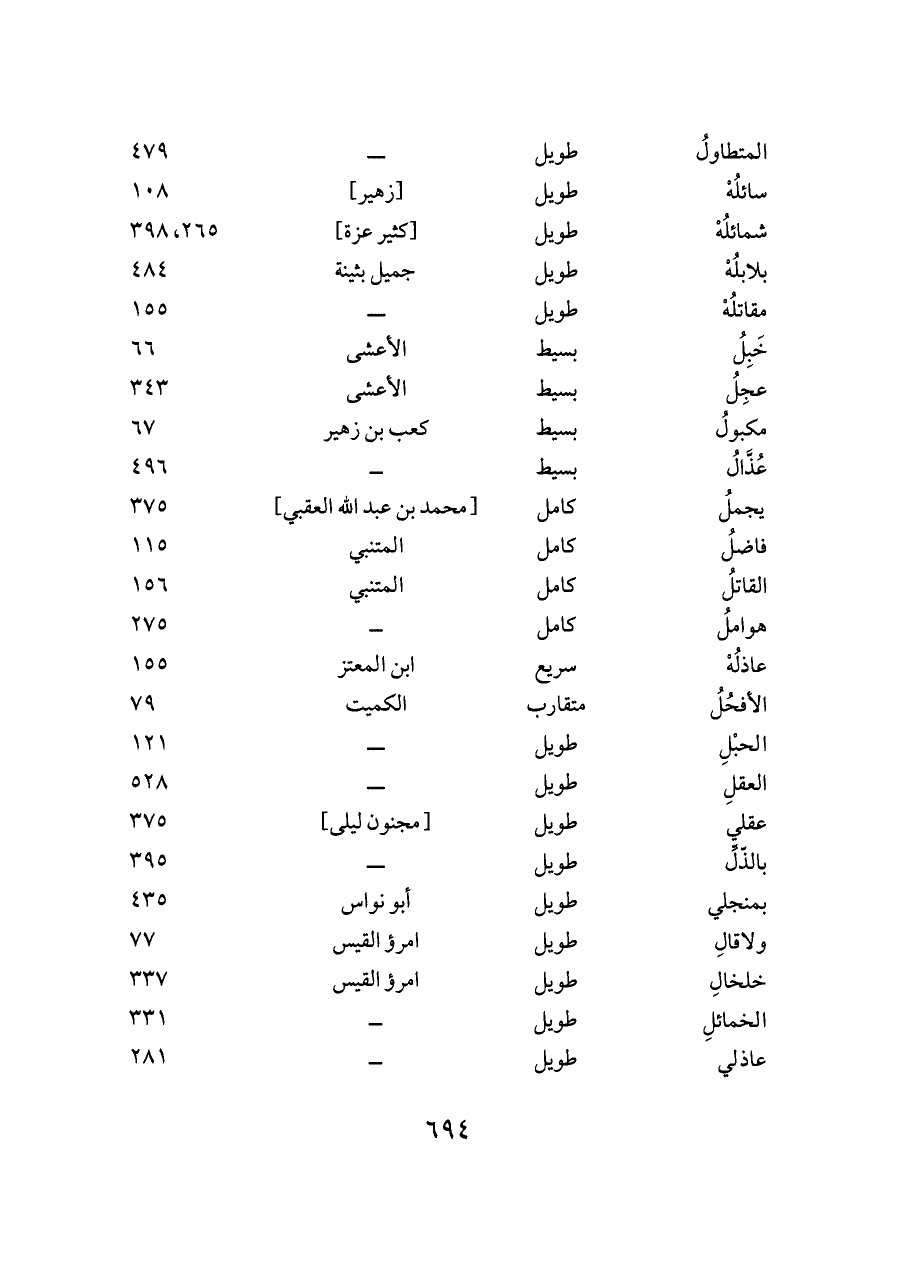 المتطاولُ طويل — ٤٧٩
سائلُهْ طويل [زهير] ١٠٨
شمائلُهْ طويل [كثير عزة] ٢٦٥، ٣٩٨
بلابلُهْ طويل جميل بثينة ٤٨٤
مقاتلُهْ طويل — ١٥٥
خَبِلُ بسيط الأعشى ٦٦
عجِلُ بسيط الأعشى ٣٤٣
مكبولُ بسيط كعب بن زهير ٦٧
عُذَّالُ بسيط — ٤٩٦
يجملُ كامل [محمد بن عبد الله العقبي] ٣٧٥
فاضلُ كامل المتنبي ١١٥
القاتلُ كامل المتنبي ١٥٦
هواملُ كامل — ٢٧٥
عاذلُهْ سريع ابن المعتز ١٥٥
الأفحُلُ متقارب الكميت ٧٩
الحبْلِ طويل — ١٢١
العقلِ طويل — ٥٢٨
عقلي طويل [مجنون ليلى] ٣٧٥
بالذّلِّ طويل — ٣٩٥
بمنجلي طويل أبو نواس ٤٣٥
ولاقالِ طويل امرؤ القيس ٧٧
خلخالِ طويل امرؤ القيس ٣٣٧
الخمائلِ طويل — ٣٣١
عاذلي طويل — ٢٨١
٦٩٤